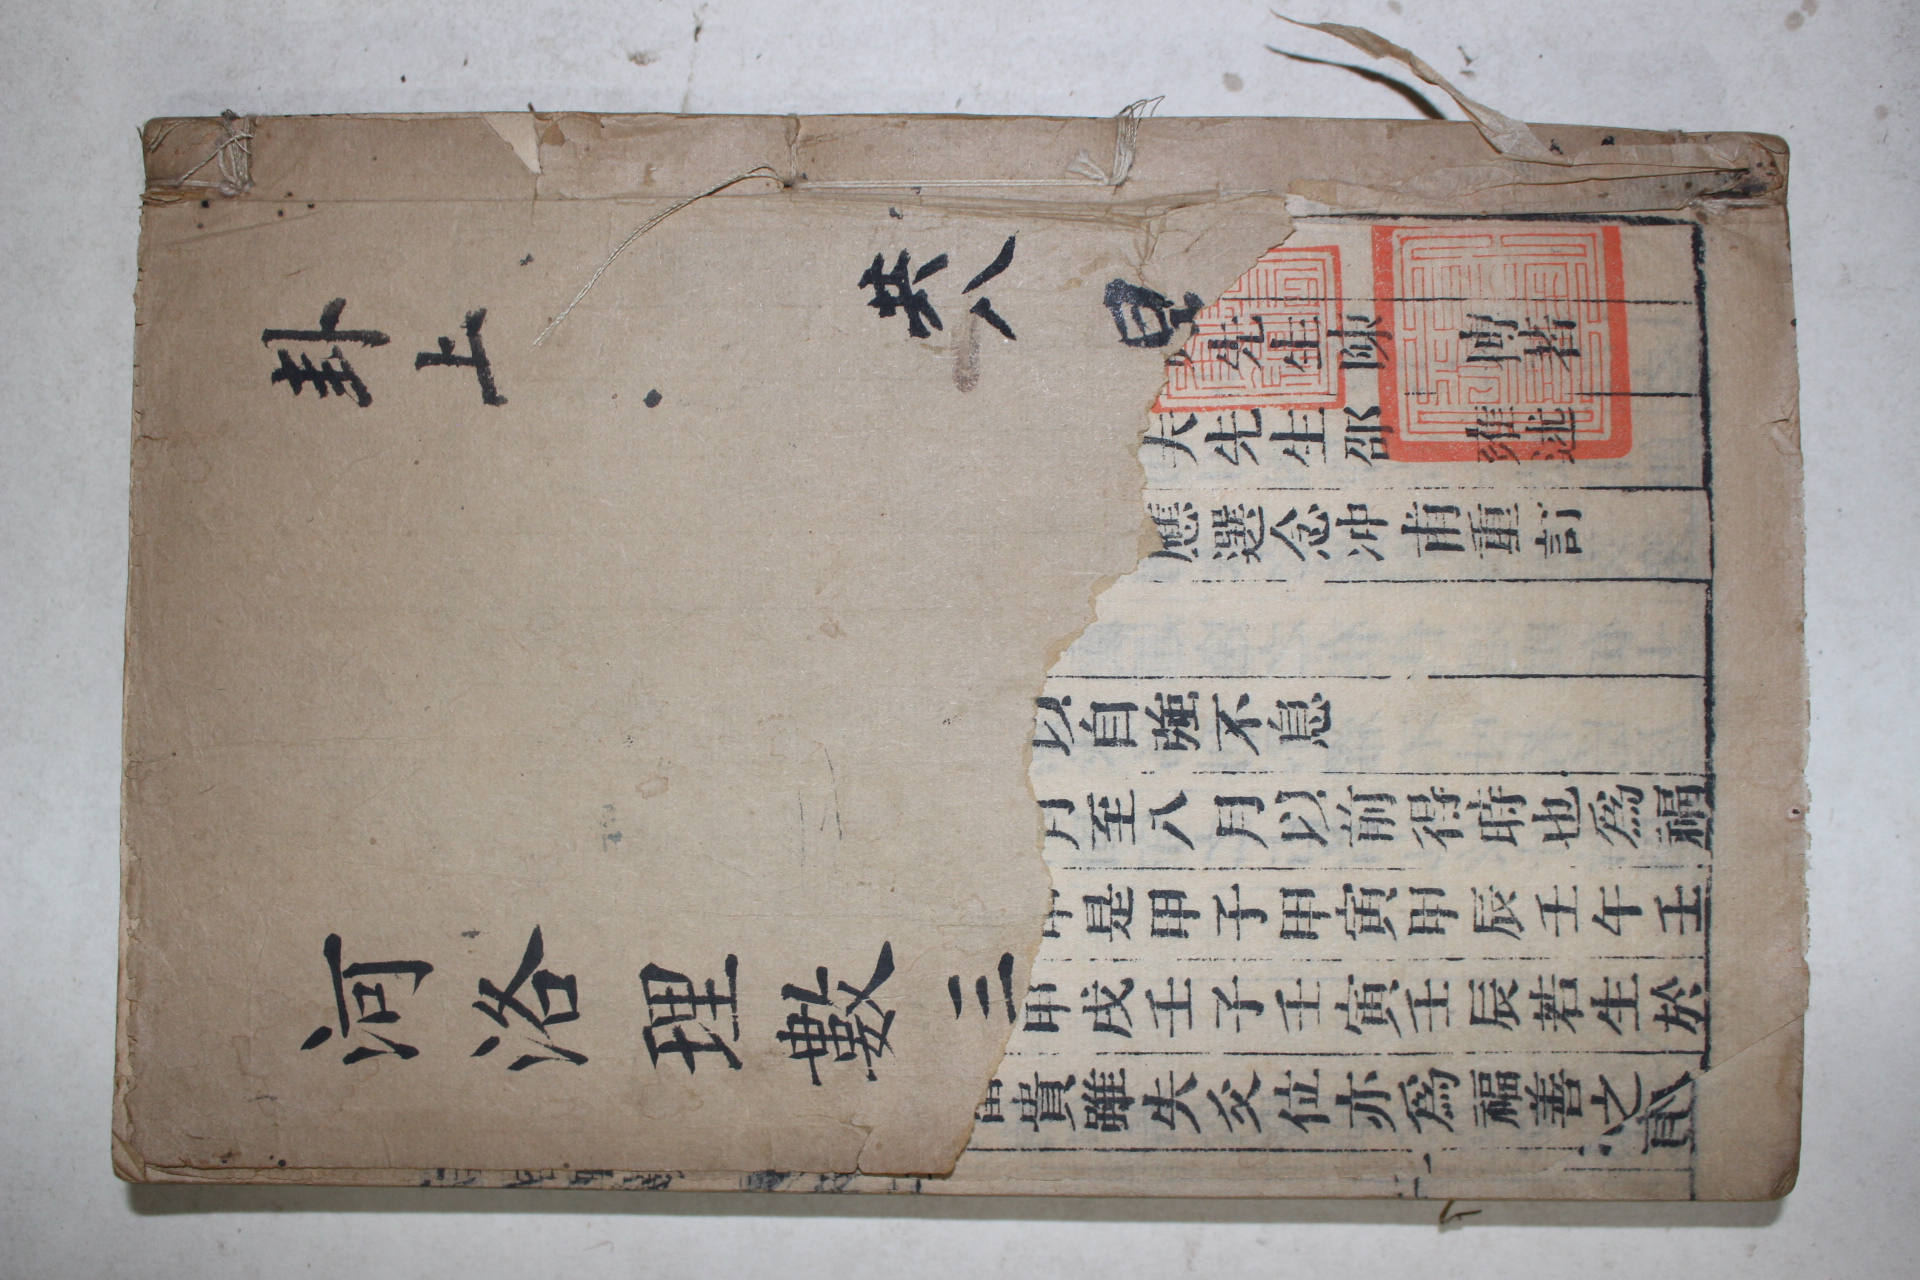 卦上
共八
河洛理數 三
先生陳 傅著
夫先生邵 雍述
應選念冲甫重訂
以自強不息
月至八月以前得時也為福
甲是甲子甲寅甲辰壬午壬
甲戌壬子壬寅壬辰若生於
富貴雖失爻位亦為福善之